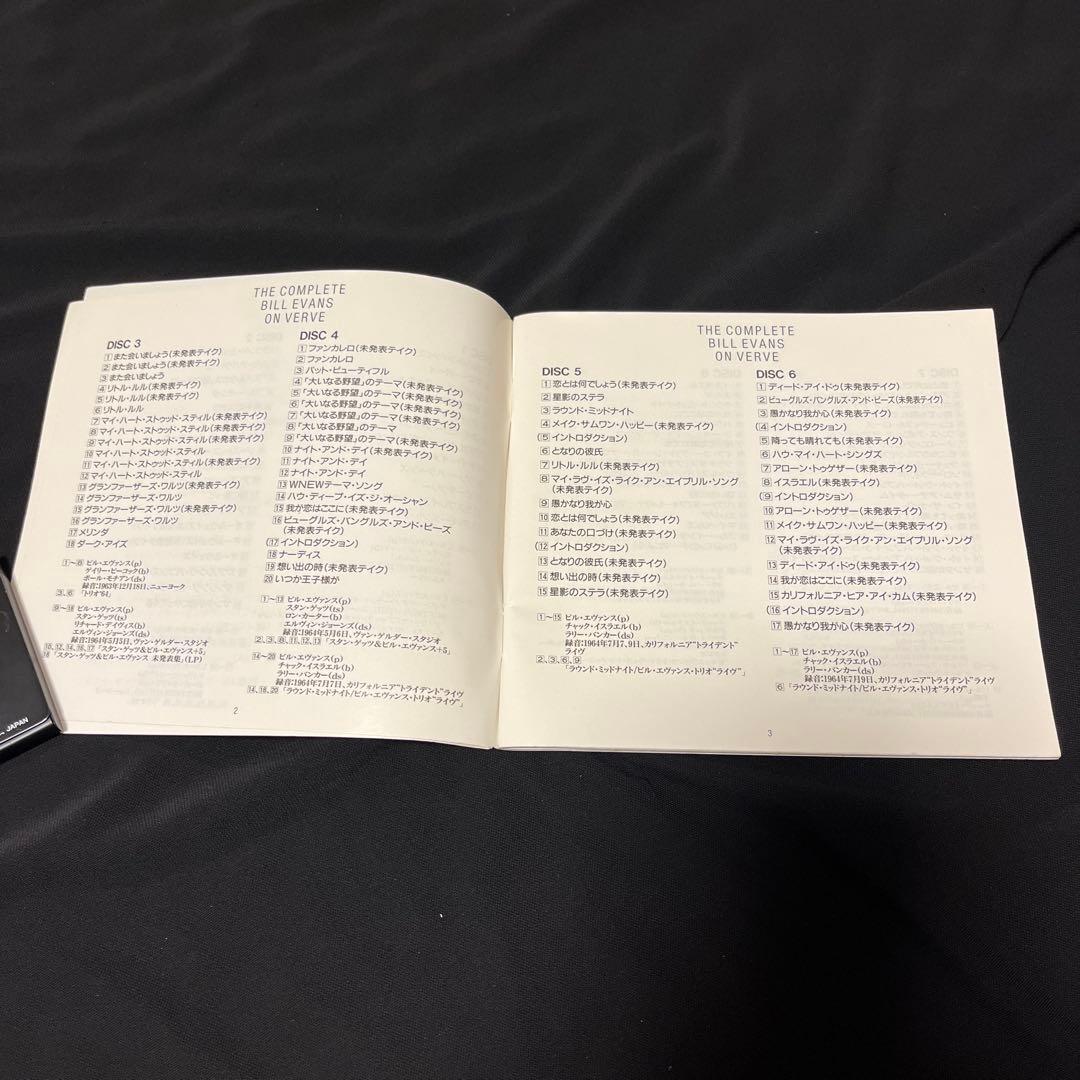 THE COMPLETE
BILL EVANS
ON VERVE
DISC 3
1 また会いましょう(未発表テイク)
2 また会いましょう(未発表テイク)
3 また会いましょう
4 リトル・ルル(未発表テイク)
5 リトル・ルル(未発表テイク)
6 リトル・ルル
7 マイ・ハート・ストゥッド・スティル(未発表テイク)
8 マイ・ハート・ストゥッド・スティル(未発表テイク)
9 マイ・ハート・ストゥッド・スティル(未発表テイク)
10 マイ・ハート・ストゥッド・スティル
11 マイ・ハート・ストゥッド・スティル(未発表テイク)
12 マイ・ハート・ストゥッド・スティル
13 グランファーザーズ・ワルツ(未発表テイク)
14 グランファーザーズ・ワルツ
15 グランファーザーズ・ワルツ(未発表テイク)
16 グランファーザーズ・ワルツ
17 メリンダ
18 ダーク・アイズ
1〜8 ビル・エヴァンス(p)
ゲイリー・ピーコック(b)
ポール・モチアン(ds)
録音:1963年12月18日、ニューヨーク
3、6 「トリオ'64」
9〜18 ビル・エヴァンス(p)
スタン・ゲッツ(ts)
リチャード・デイヴィス(b)
エルヴィン・ジョーンズ(ds)
録音:1964年5月5日、ヴァン・ゲルダー・スタジオ
10、12、14、16、17 「スタン・ゲッツ&ビル・エヴァンス+5」
18 「スタン・ゲッツ&ビル・エヴァンス 未発表集」(LP)
DISC 4
1 ファンカレロ(未発表テイク)
2 ファンカレロ
3 バット・ビューティフル
4 「大いなる野望」のテーマ(未発表テイク)
5 「大いなる野望」のテーマ(未発表テイク)
6 「大いなる野望」のテーマ(未発表テイク)
7 「大いなる野望」のテーマ(未発表テイク)
8 「大いなる野望」のテーマ
9 「大いなる野望」のテーマ(未発表テイク)
10 ナイト・アンド・デイ(未発表テイク)
11 ナイト・アンド・デイ
12 ナイト・アンド・デイ
13 WNEWテーマ・ソング
14 ハウ・ディープ・イズ・ジ・オーシャン
15 我が恋はここに(未発表テイク)
16 ビューグルズ・バングルズ・アンド・ビーズ
(未発表テイク)
(17 イントロダクション)
18 ナーディス
19 想い出の時(未発表テイク)
20 いつか王子様が
1〜13 ビル・エヴァンス(p)
スタン・ゲッツ(ts)
ロン・カーター(b)
エルヴィン・ジョーンズ(ds)
録音:1964年5月6日、ヴァン・ゲルダー・スタジオ
2、3、8、11、12、13 「スタン・ゲッツ&ビル・エヴァンス+5」
14〜20 ビル・エヴァンス(p)
チャック・イスラエル(b)
ラリー・バンカー(ds)
録音:1964年7月7日、カリフォルニア"トライデント"ライヴ
14、18、20 「ラウンド・ミッドナイト/ビル・エヴァンス・トリオ"ライヴ"」
2
THE COMPLETE
BILL EVANS
ON VERVE
DISC 5
1 恋とは何でしょう(未発表テイク)
2 星影のステラ
3 ラウンド・ミッドナイト
4 メイク・サムワン・ハッピー(未発表テイク)
(5 イントロダクション)
6 となりの彼氏
7 リトル・ルル(未発表テイク)
8 マイ・ラヴ・イズ・ライク・アン・エイプリル・ソング
(未発表テイク)
9 愚かなり我が心
10 恋とは何でしょう(未発表テイク)
11 あなたの口づけ(未発表テイク)
(12 イントロダクション)
13 となりの彼氏(未発表テイク)
14 想い出の時(未発表テイク)
15 星影のステラ(未発表テイク)
1〜15 ビル・エヴァンス(p)
チャック・イスラエル(b)
ラリー・バンカー(ds)
録音:1964年7月7、9日、カリフォルニア"トライデント"
ライヴ
2、3、6、9
「ラウンド・ミッドナイト/ビル・エヴァンス・トリオ"ライヴ"」
DISC 6
1 ディード・アイ・ドゥ(未発表テイク)
2 ビューグルズ・バングルズ・アンド・ビーズ(未発表テイク)
3 愚かなり我が心(未発表テイク)
(4 イントロダクション)
5 降っても晴れても(未発表テイク)
6 ハウ・マイ・ハート・シングズ
7 アローン・トゥゲザー(未発表テイク)
8 イスラエル(未発表テイク)
(9 イントロダクション)
10 アローン・トゥゲザー(未発表テイク)
11 メイク・サムワン・ハッピー(未発表テイク)
12 マイ・ラヴ・イズ・ライク・アン・エイプリル・ソング
(未発表テイク)
13 ディード・アイ・ドゥ(未発表テイク)
14 我が恋はここに(未発表テイク)
15 カリフォルニア・ヒア・アイ・カム(未発表テイク)
(16 イントロダクション)
17 愚かなり我が心(未発表テイク)
1〜17 ビル・エヴァンス(p)
チャック・イスラエル(b)
ラリー・バンカー(ds)
録音:1964年7月9日、カリフォルニア"トライデント"ライヴ
6 「ラウンド・ミッドナイト/ビル・エヴァンス・トリオ"ライヴ"」
3
JAPAN